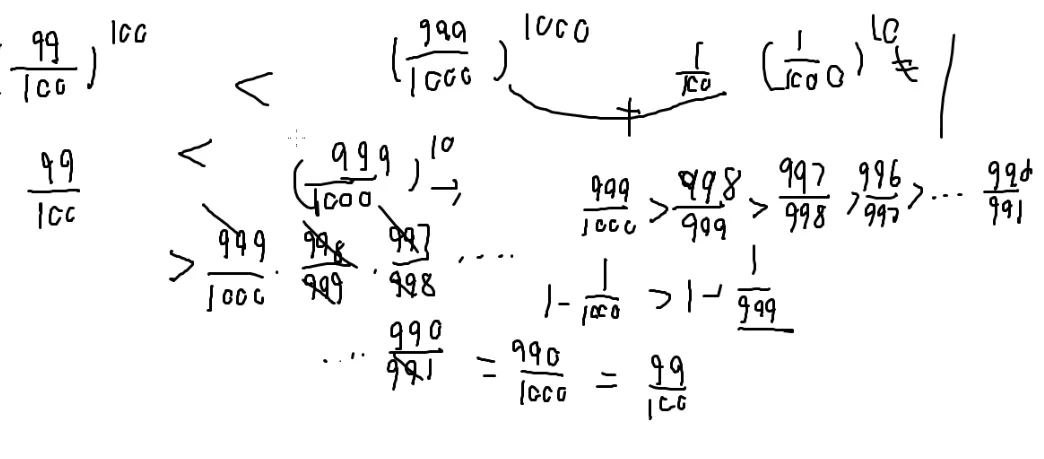 (99/100)^100 < (999/1000)^1000
1/100 (1/1000)^10
99/100 < (999/1000)^10 →
999/1000 > 998/999 > 997/998 > 996/997 > ... 990/991
> 999/1000 · 998/999 · 997/998 ....
1 - 1/1000 > 1 - 1/999
.... 990/991 = 990/1000 = 99/100